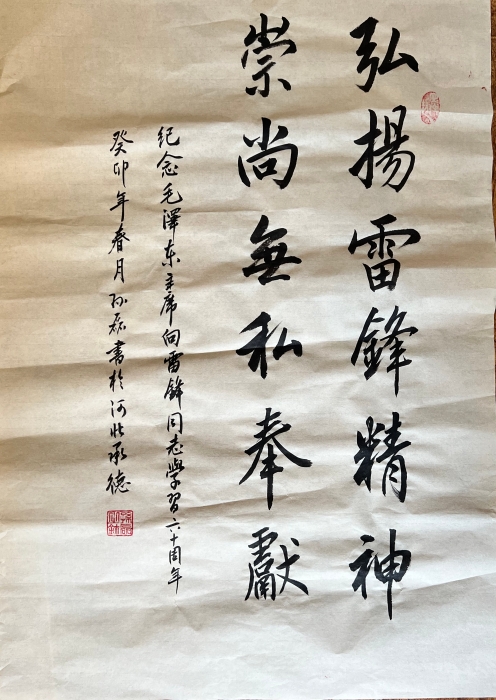 弘揚雷鋒精神
崇尚無私奉獻
纪念毛澤东主席向雷鋒同志學習六十周年
癸卯年春月孙磊書於河北承德